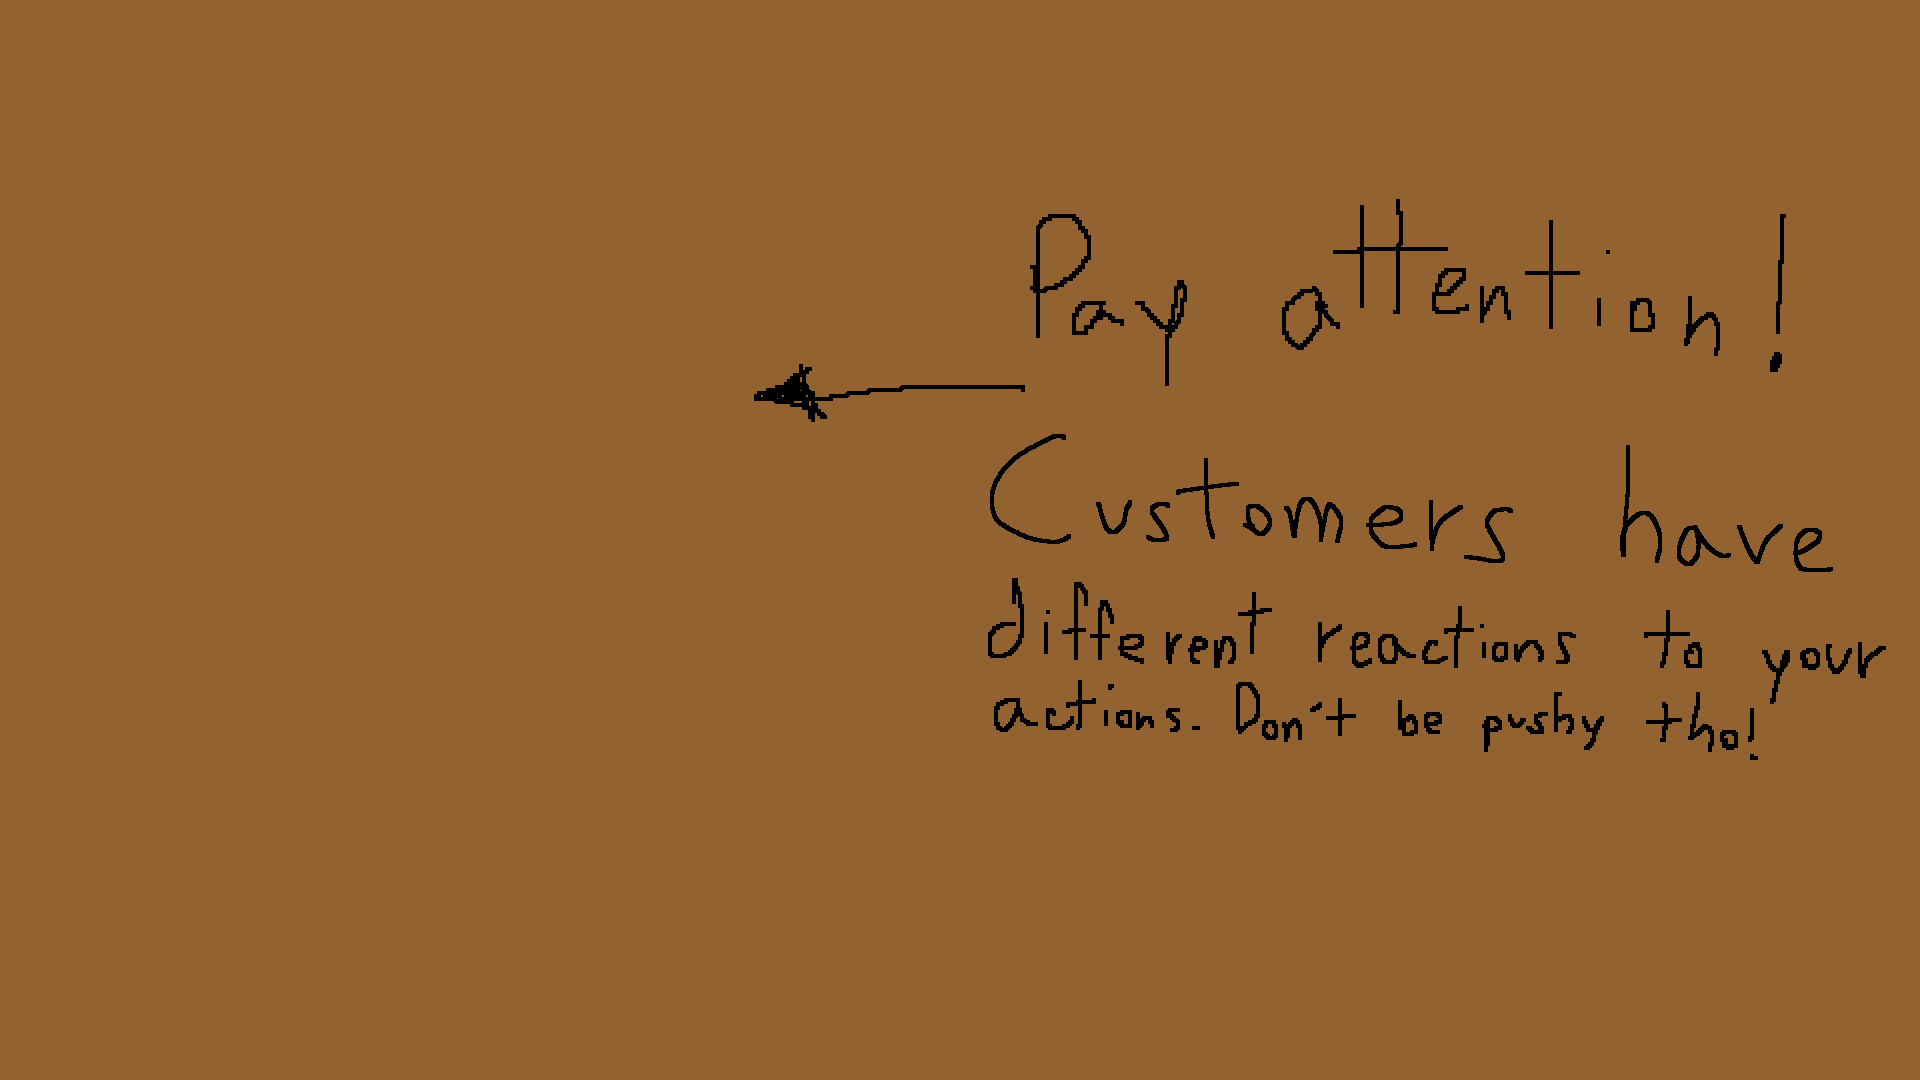 Pay attention!
Customers have
different reactions to your
actions. Don't be pushy tho!